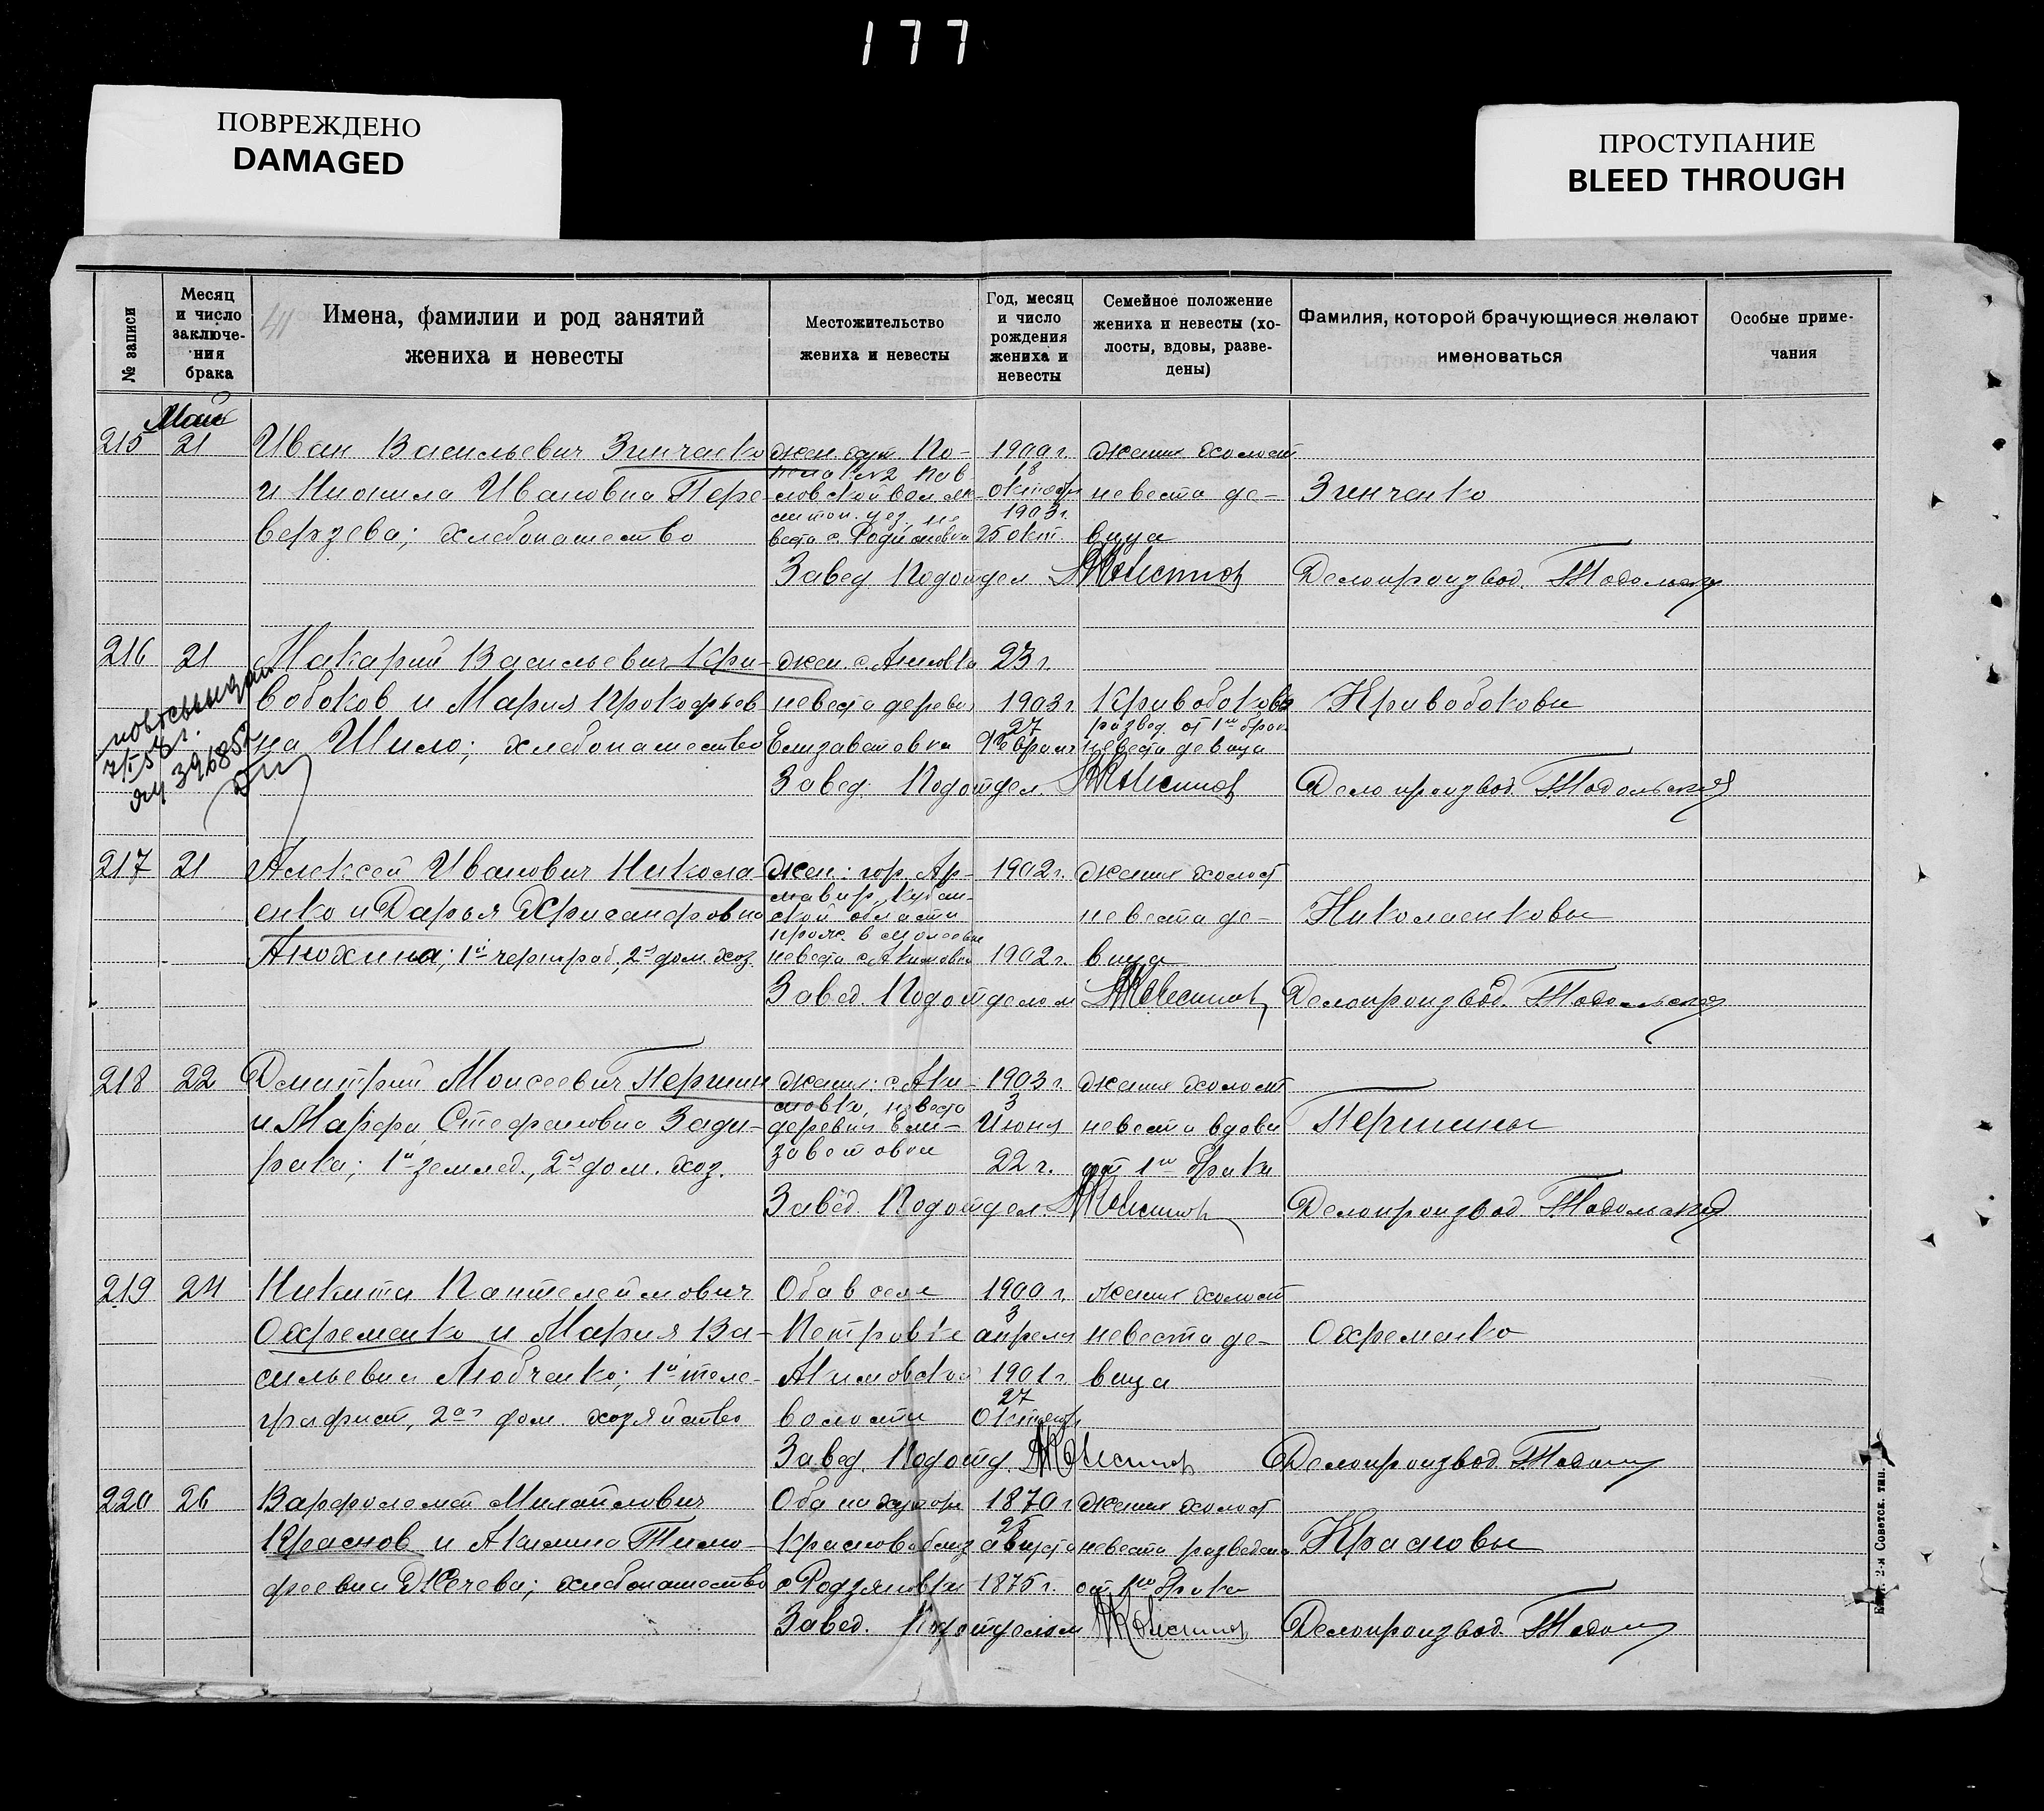 177
ПОВРЕЖДЕНО
DAMAGED
ПРОСТУПАНИЕ
BLEED THROUGH
№ записи
Месяц
и число
заключе-
ния
брака
41
Имена, фамилии и род занятий
жениха и невесты
Местожительство
жениха и невесты
Год, месяц
и число
рождения
жениха и
невесты
Семейное положение
жениха и невесты (хо-
лосты, вдовы, разве-
дены)
Фамилия, которой брачующиеся желают
именоваться
Особые приме-
чания
Май
215 21
Иван Васильевич Зинченко
и Неонила Ивановна Пере-
верзева; хлебопашество
жен.
невес-
та с. Родионовка
1900 г.
18
октябр
1903 г.
25 окт.
жених холост
невеста де-
вица
Зинченко
Завед. Подотдел.
Делопроизвод.
216 21
Макарий Васильевич Кри-
вобоков и Мария Прокофьев-
на Шило; хлебопашество
7/I 56 г.
396852
жен. с. Акимовка
невеста деревня
Елизаветовка
23 г.
1903 г.
27
февраля
Кривобоков
развед. от 1го брак
невеста девица
Кривобоковы
Завед. Подотдел.
Делопроизвод.
217 21
Алексей Иванович Никола-
енко и Дарья Хрисанфовна
Анохина; 1й черн раб, 2я дом. хоз.
жен: гор. Ар-
мавир, Кубан-
ской области
невеста с. Акимовки
1902 г.
1902 г.
жених холост
невеста де-
вица
Николаенковы
Завед. Подотделом
Делопроизвод.
218 22
Дмитрий Моисеевич Першин
и Марфа Стефановна Зади-
рака; 1й землед., 2я дом. хоз.
жених: с. Аки-
мовка, невеста
деревня Ели-
заветовки
1903 г.
3
Июня
22 г.
жених холост
невеста вдова
от 1го брака
Першины
Завед. Подотдел.
Делопроизвод.
219 24
Никита Пантелеймович
Охременко и Мария Ва-
сильевна Любченко; 1й теле-
графист, 2ая дом. хозяйство
Оба в селе
Петровке
Акимовской
волости
1900 г.
3
апреля
1901 г.
27
Октябр
жених холост
невеста де-
вица
Охременко
Завед. Подотд.
Делопроизвод.
220 26
Варфоломей Михайлович
Краснов и Акилина Тимо-
феевна Жечева; хлебопашество
Оба на хуторе
Краснова близ
с. Родзяновки
1870 г.
25
августа
1875 г.
жених холост
невеста разведена
от 1го брака
Красновы
Завед. Подотделом
Делопроизвод.
2-я Советск. тип.